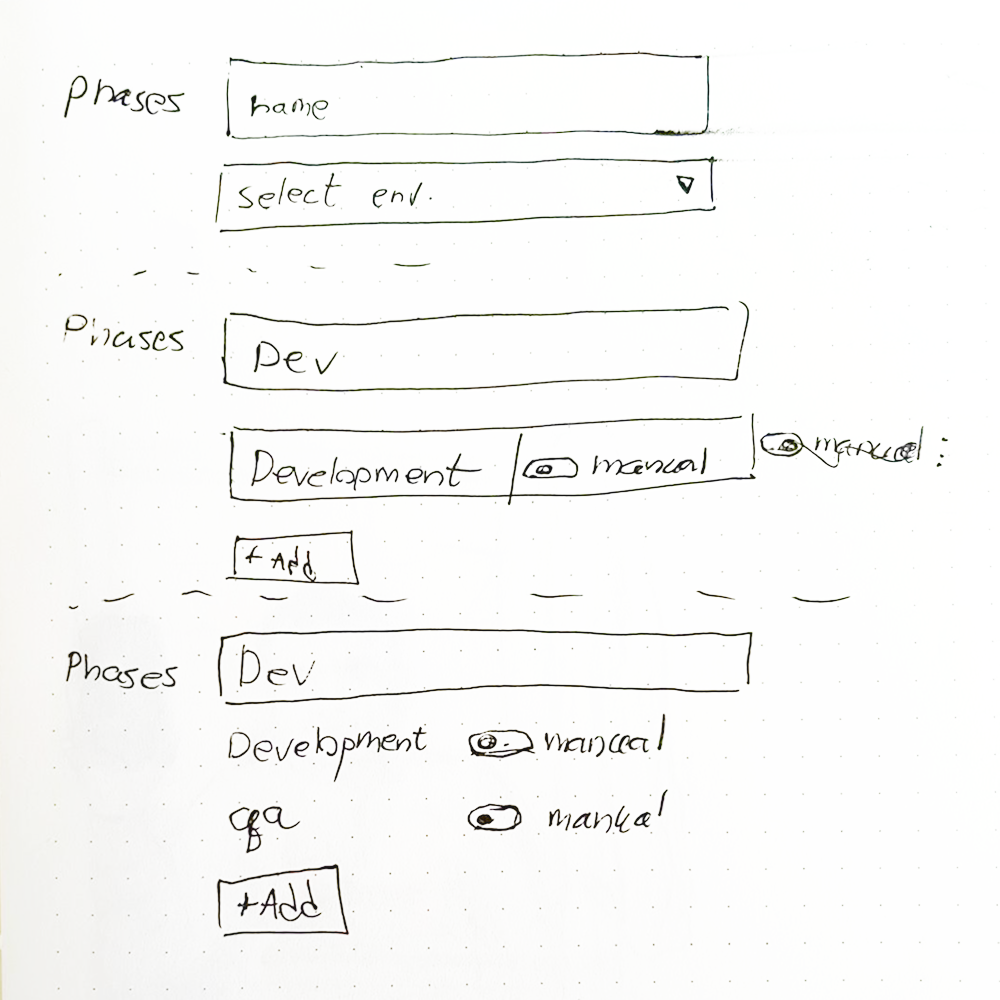 Phases name
select env.
Phases Dev
Development manual manual :
+ Add
Phases Dev
Development manual
qa manual
+Add